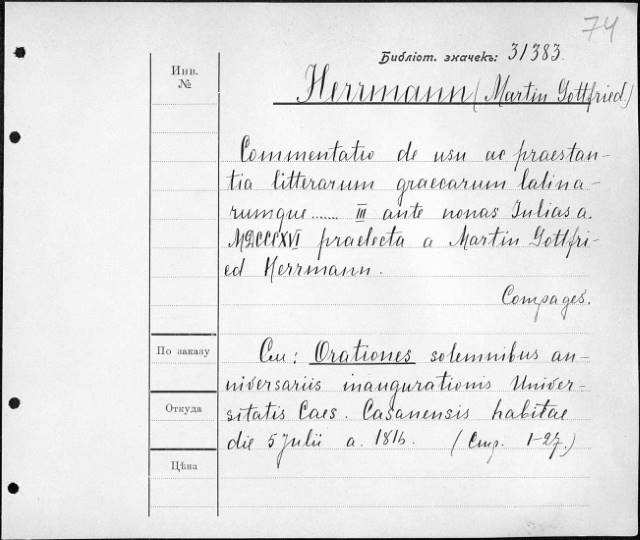 74
Библіот. значекъ: 31383.
Инв.
№
Herrmann (Martin Gottfried)
Commentatio de usu ac praestan-
tia litterarum graecarum latina-
rumque....... III ante nonas Iulias a.
MDCCCXVI praelecta a Martin Gottfri-
ed Herrmann.
Compages.
По заказу
См: Orationes solemnibus an-
niversariis inaugurationis Univer-
Откуда
sitatis Caes. Casanensis habitae
die 5 Julii a. 1816. (Стр. 1-27.)
Цѣна